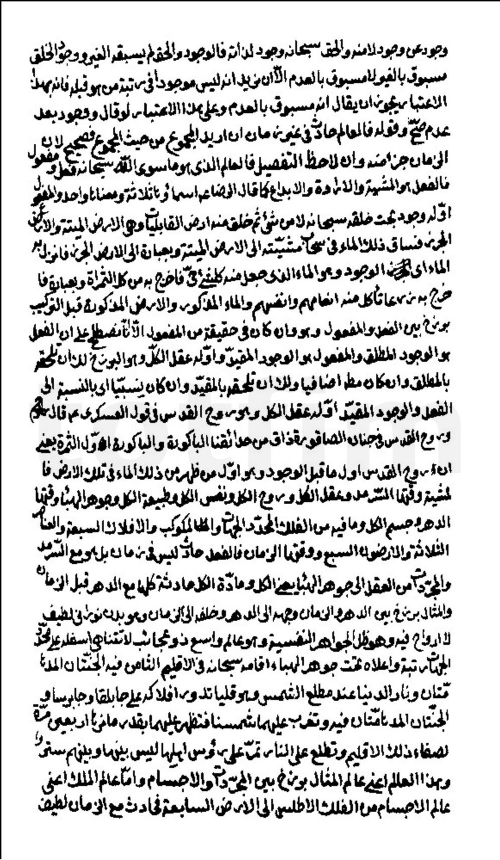 وجود عن وجود لا منه والحق سبحانه وجود لذاته فالوجود والحق لم يسبقه الغير ووجود الخلق
مسبوق بالغير لا مسبوق بالعدم الا ان نريد انه ليس موجودا في رتبة من هو قبله فانه بهذا
الاعتبار يجوز ان يقال انه مسبوق بالعدم وعلى هذا الاعتبار لو قال وجود بعد
عدم صح وقوله فالعالم حادث في غير زمان ان اريد المجموع من حيث المجموع فصحيح لان
الزمان جزء منه وان لاحظ التفصيل فالعالم الذي هو ما سوى الله سبحانه فعل ومفعول
فالفعل هو المشية والارادة والابداع كما قال الرضا عم اسماؤها ثلاثة ومعناها واحد والمفعول
اوله وجود بحت خلقه سبحانه لا من شئ ثم خلق منه ارض القابليات وهي الارض الميتة والارض
الجرز فساق ذلك الماء في سحاب مشيته الى الارض الميتة وبعبارة الى الارض الجرز فانزل به
الماء اي الوجود وهو الماء الذي جعل منه كل شئ حي فاخرج به من كل الثمرات وبعبارة فا
خرج به زرعا تاكل منه انعامهم وانفسهم والماء المذكور والارض المذكورة قبل التركيب
برزخ بين الفعل والمفعول وهو وان كان في حقيقة من المفعول الا انا نصطلح على ان الفعل
هو الوجود المطلق والمفعول هو الوجود المقيد واوله عقل الكل وهو البرزخ لك ان تلحقه
بالمطلق وان كان مط اضافيا ولك ان تلحقه بالمقيد وان كان نسبيا اي بالنسبة الى
الفعل والوجود المقيد اوله عقل الكل وهو روح القدس في قول العسكري عم قال
وروح القدس في جنان الصاقورة ذاق من حدائقنا الباكورة والباكورة اول الثمرة يعني
ان روح القدس اول ما قبل الوجود وهو اول من ظهر من ذلك الماء في تلك الارض فا
لمشية وقتها السرمد وعقل الكل وروح الكل ونفس الكل وطبيعة الكل وجوهر الهباء وقتها
الدهر وجسم الكل وما فيه من الفلك المحدد الجهات والمكوكب والافلاك السبعة والعناصر
الثلاثة والارضون السبع ووقتها الزمان فالفعل حادث ليس في زمان بل هو مع السرمد
والمجردات من العقل الى جوهر الهباء يعني الكل ومادة الكل حادثة كلها مع الدهر قبل الزمان
والمثال برزخ بين الدهر والزمان وجهه الى الدهر وخلفه الى الزمان وهو بدن نوراني لطيف
لا ارواح فيه وهو ظل الجواهر النفسية وهو عالم واسع ذو عجائب لا تتناهى اسفله على محدد
الجهات رتبة واعلاه تحت جوهر الهباء اقامه سبحانه في الاقليم الثامن فيه الجنتان المدها
متان ونار الدنيا عند مطلع الشمس وهو قليا تدور افلاكه على جابلقا وجابرسا و
الجنتان المدهامتان فيه وتغرب عليهما شمسنا فتظهر عليهما بقدر ما اربعين مرة
لصفاء ذلك الاقليم وتطلع على النار تمر على رؤس اهلها ليس بينها وبينهم ستر
وهذا العالم اعني عالم المثال برزخ بين المجردات والاجسام واما عالم الملك اعني
عالم الاجسام من الفلك الاطلس الى الارض السابعة فحادث مع الزمان لطيف